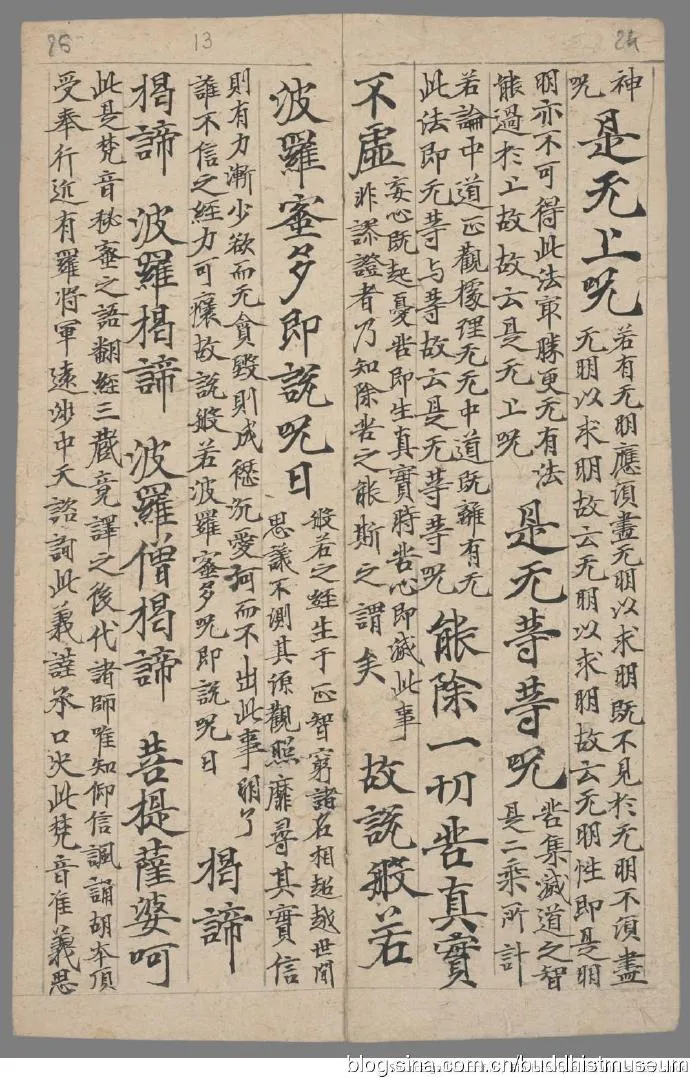 25
13
24
神
呪
是无上呪
若有无明應須盡无明以求明既不見於无明不須盡
无明以求明故云无明以求明故云无明性即是明
明亦不可得此法冣勝更无有法
能過於上故故云是无上呪
是无等等呪
苦集滅道之智
是二乘所計
若論中道正觀據理无无中道既離有无
此法即无等与等故云是无等等呪
能除一切苦真實
不虛
妄心既起憂苦即生真實時苦心即滅此事
非謬證者乃知除苦之能斯之謂矣
故說般若
波羅蜜多即說呪曰
般若之經生于正智窮諸名相超越世間
思議不測其源觀照靡尋其實信
則有力漸少欲而无貪毀則成愆沉愛河而不出此事明了
誰不信之經力可獲故說般若波羅蜜多呪即說呪曰
揭諦
揭諦 波羅揭諦 波羅僧揭諦 菩提薩婆呵
此是梵音秘蜜之語翻經三藏竟譯之後代諸師唯知仰信諷誦胡本頂
受奉行近有羅將軍遠涉中天諮詢此義謹承口决此梵音准義思
blog.sina.com.cn/buddhistmuseum